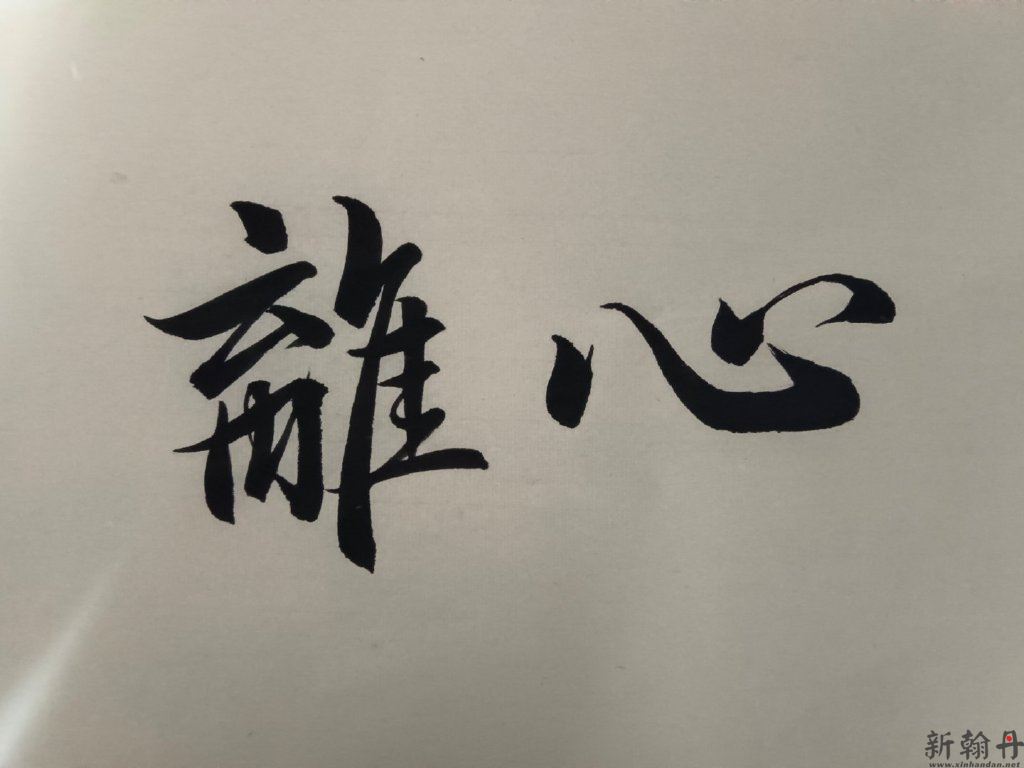 離心
新翰丹
www.xinhandan.net